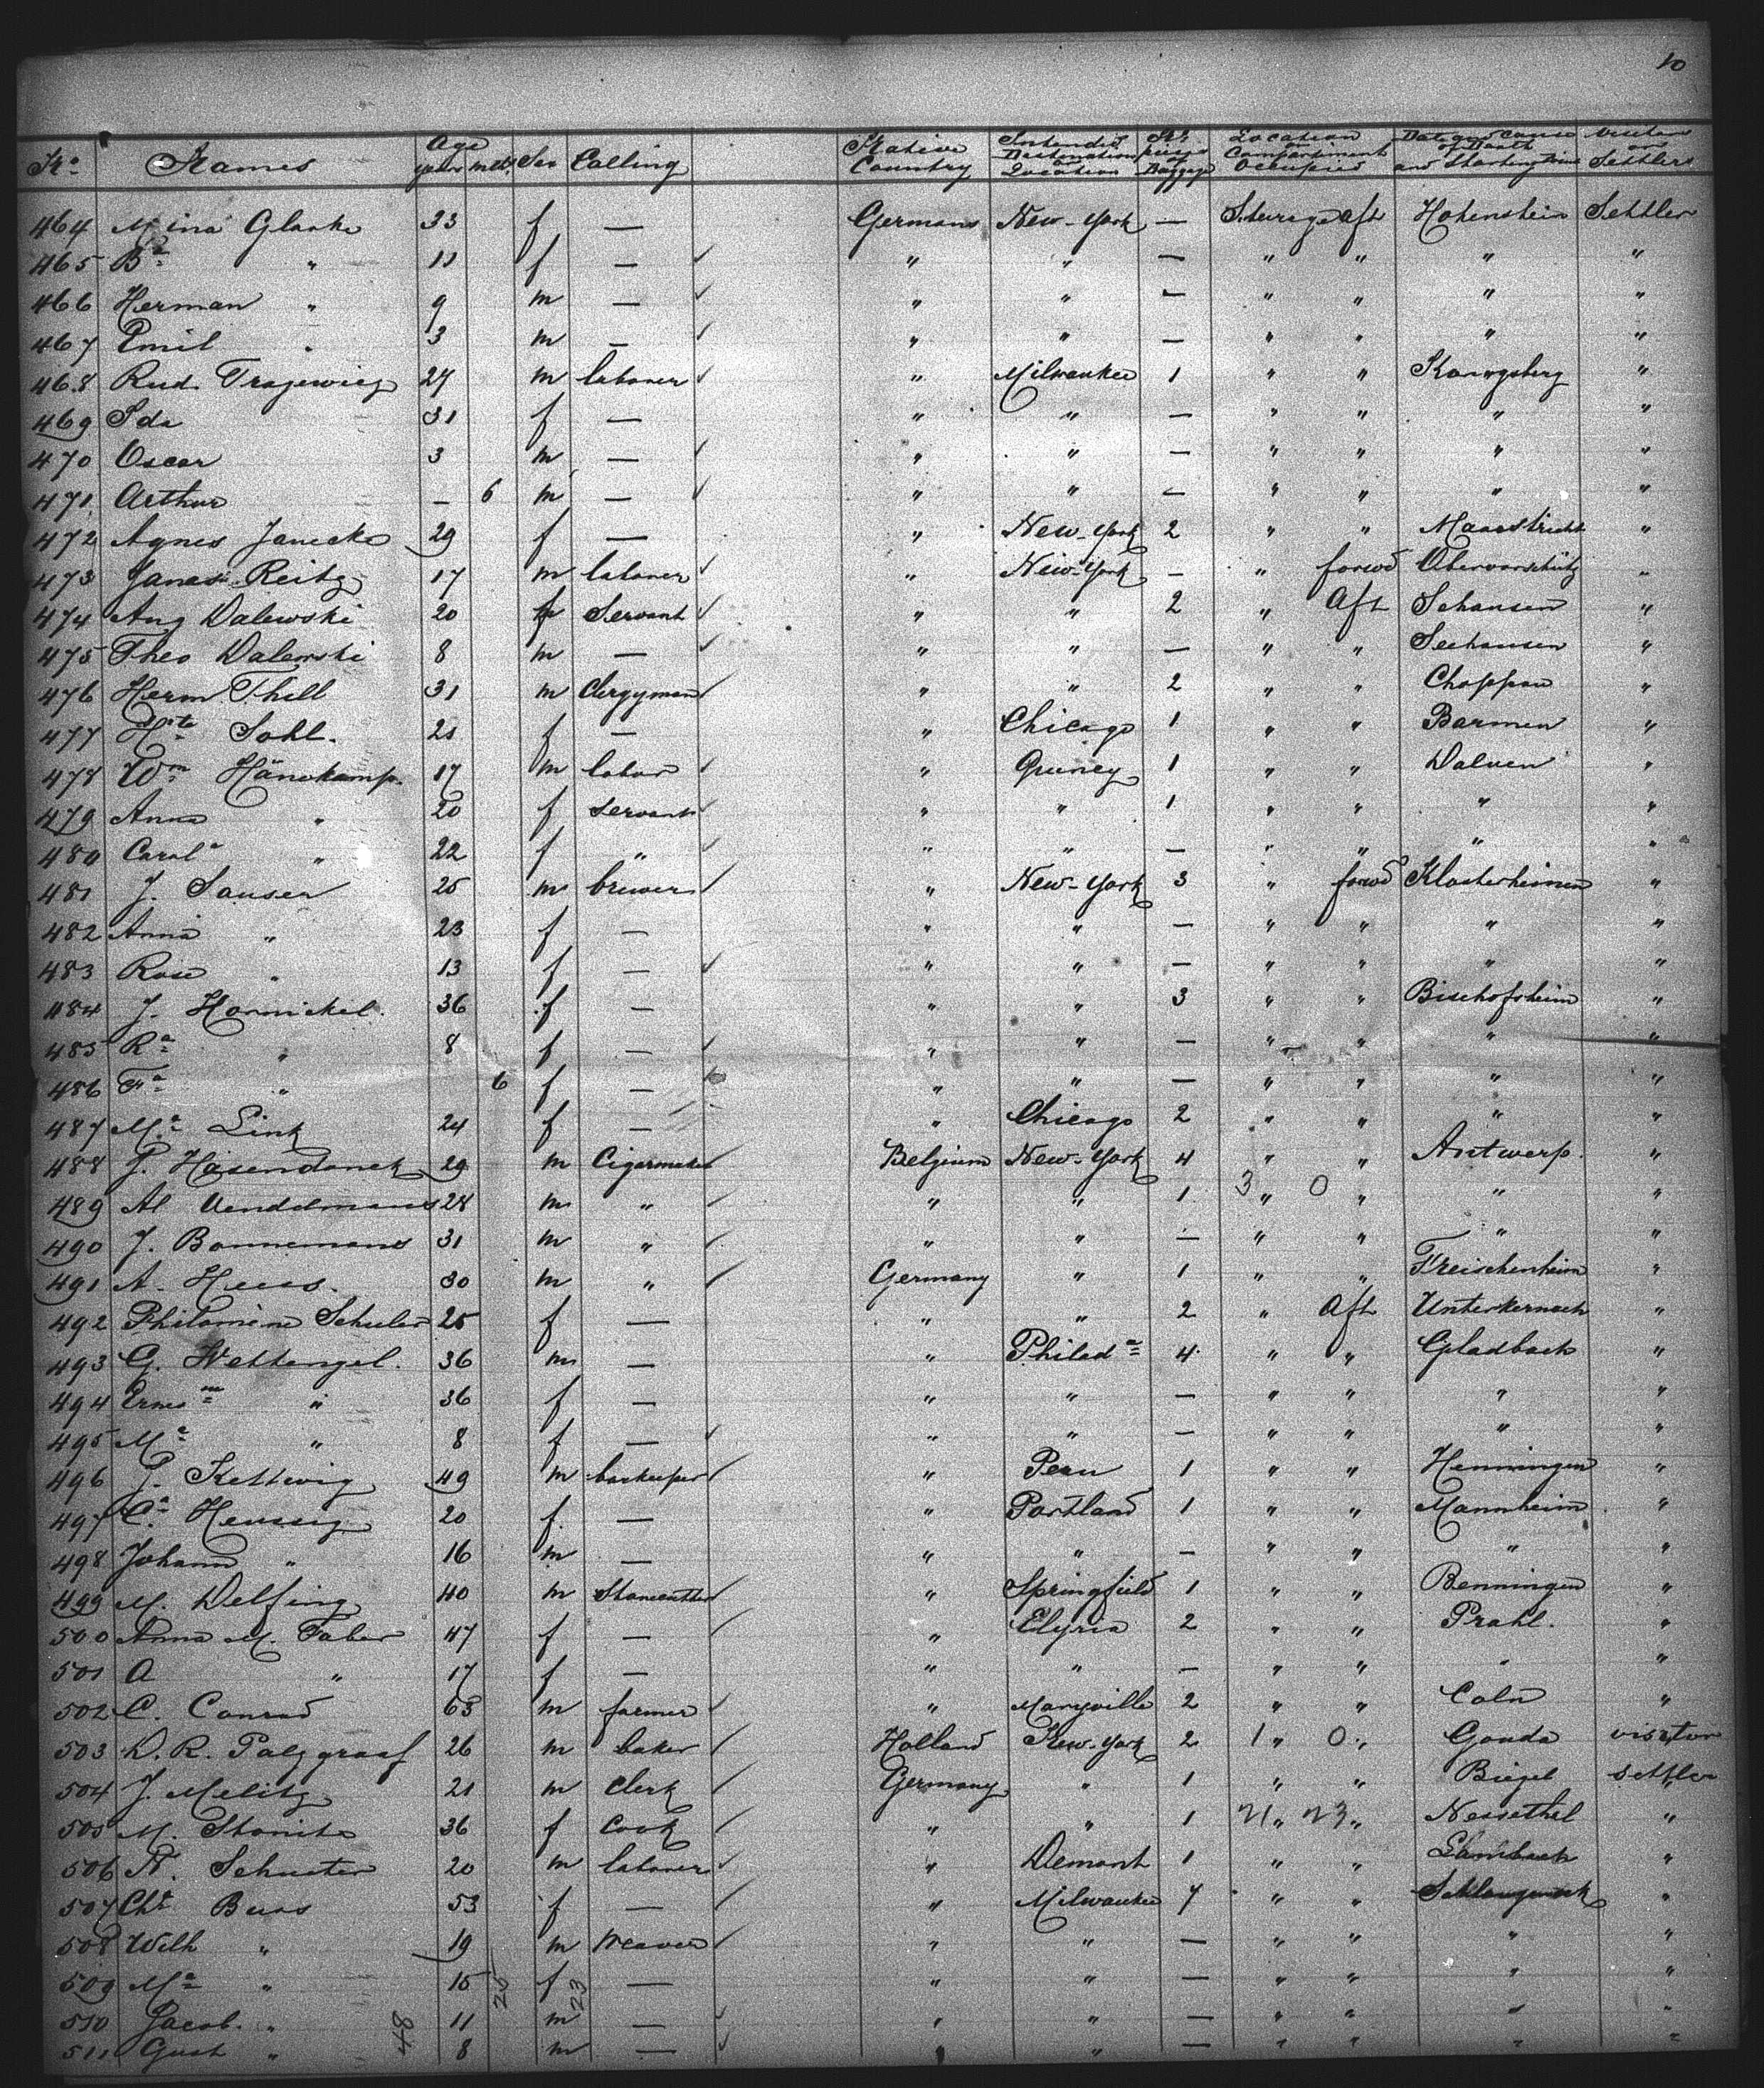 10
No. Names Age years mths Sex Calling Native Country Intended Destination or Location No. pieces of Baggage Location or Compartment Occupied Date and Cause of Death and Visitors or Settlers
464 Mina Glaske 33 f — Germans New-York — Steerage aft Hohenstein Settler
465 Ba " 11 f — " " — " " " "
466 Herman " 9 m — " " — " " " "
467 Emil " 3 m — " " — " " " "
468 Rud. 27 m laborer " Milwaukee 1 " " Konigsberg "
469 Ida 31 f — " " — " " " "
470 Oscar 3 m — " " — " " " "
471 Arthur — 6 m — " " — " " " "
472 Agnes Janecke 29 f — " New-York 2 " " Maastricht "
473 Reitz 17 m laborer " New-York — " forwd "
474 Aug Dalewski 20 f Servant " " 2 " Aft Sehausen "
475 Theo Dalewski 8 m — " " — " " Seehausen "
476 Herm. Thill 31 m Clergyman " " 2 " " "
477 Sohl. 21 f — " Chicago 1 " " Barmen "
478 Wm Hänskamp. 17 m labor " Quincy 1 " " "
479 Anna " 20 f servant " " 1 " " " "
480 Carola " 22 f " " " — " " " "
481 J. Sauser 25 m brewer " New-York 3 " forwd "
482 Anna " 23 f — " " — " " " "
483 Rose " 13 f — " " — " " " "
484 J. Hornickel. 36 f — " " 3 " " Bischofsheim "
485 Ra " 8 f — " " — " " " "
486 Fa " 6 f — " " — " " " "
487 Ma Link 24 f — " Chicago 2 " " " "
488 P. Hasendonck 29 m Cigarmaker Belgium New-York 4 " " Antwerp. "
489 Al Vendelmans 28 m " " " 1 3 " 0 " " "
490 J. Bonnemans 31 m " " " — " " " "
491 A. Heus. 30 m " Germany " 1 " " Freischenheim "
492 Philomine Schuler 25 f — " " 2 " Aft Unterkernach "
493 G. Wettengel. 36 m — " Philada 4 " " Gladbach "
494 " 36 f — " " — " " " "
495 Ma " 8 f — " " — " " " "
496 Kettwig 49 m barkeeper " Peru 1 " " Henningen "
497 Ca Heussig 20 f — " Portland 1 " " Mannheim "
498 Johann " 16 m — " " — " " " "
499 M. Delfing 40 m Stonecutter " Springfield 1 " " Benningen "
500 Anna M. Faber 47 f — " Elyria 2 " " Prahl. "
501 A " 17 f — " " — " " " "
502 C. Conrad 63 m farmer " Maryville 2 " " Coln "
503 D. R. Palzgraaf 26 m baker Holland New-York 2 1 " 0 " Gouda visitor
504 J. Melitz 21 m Clerk Germany " 1 " " Biegel settler
505 M. 36 f Cook " " 1 21 " 23 " Nessethal "
506 N. Schuster 20 m laborer " Demont 1 " " "
507 Chr Buss 53 f — " Milwaukee 7 " " "
508 Wilh " 19 m Weaver " " — " " " "
509 Ma " 15 f — " " — " " " "
510 Jacob. " 11 m — " " — " " " "
511 Gust " 8 m — " " — " " " "
48 25 23